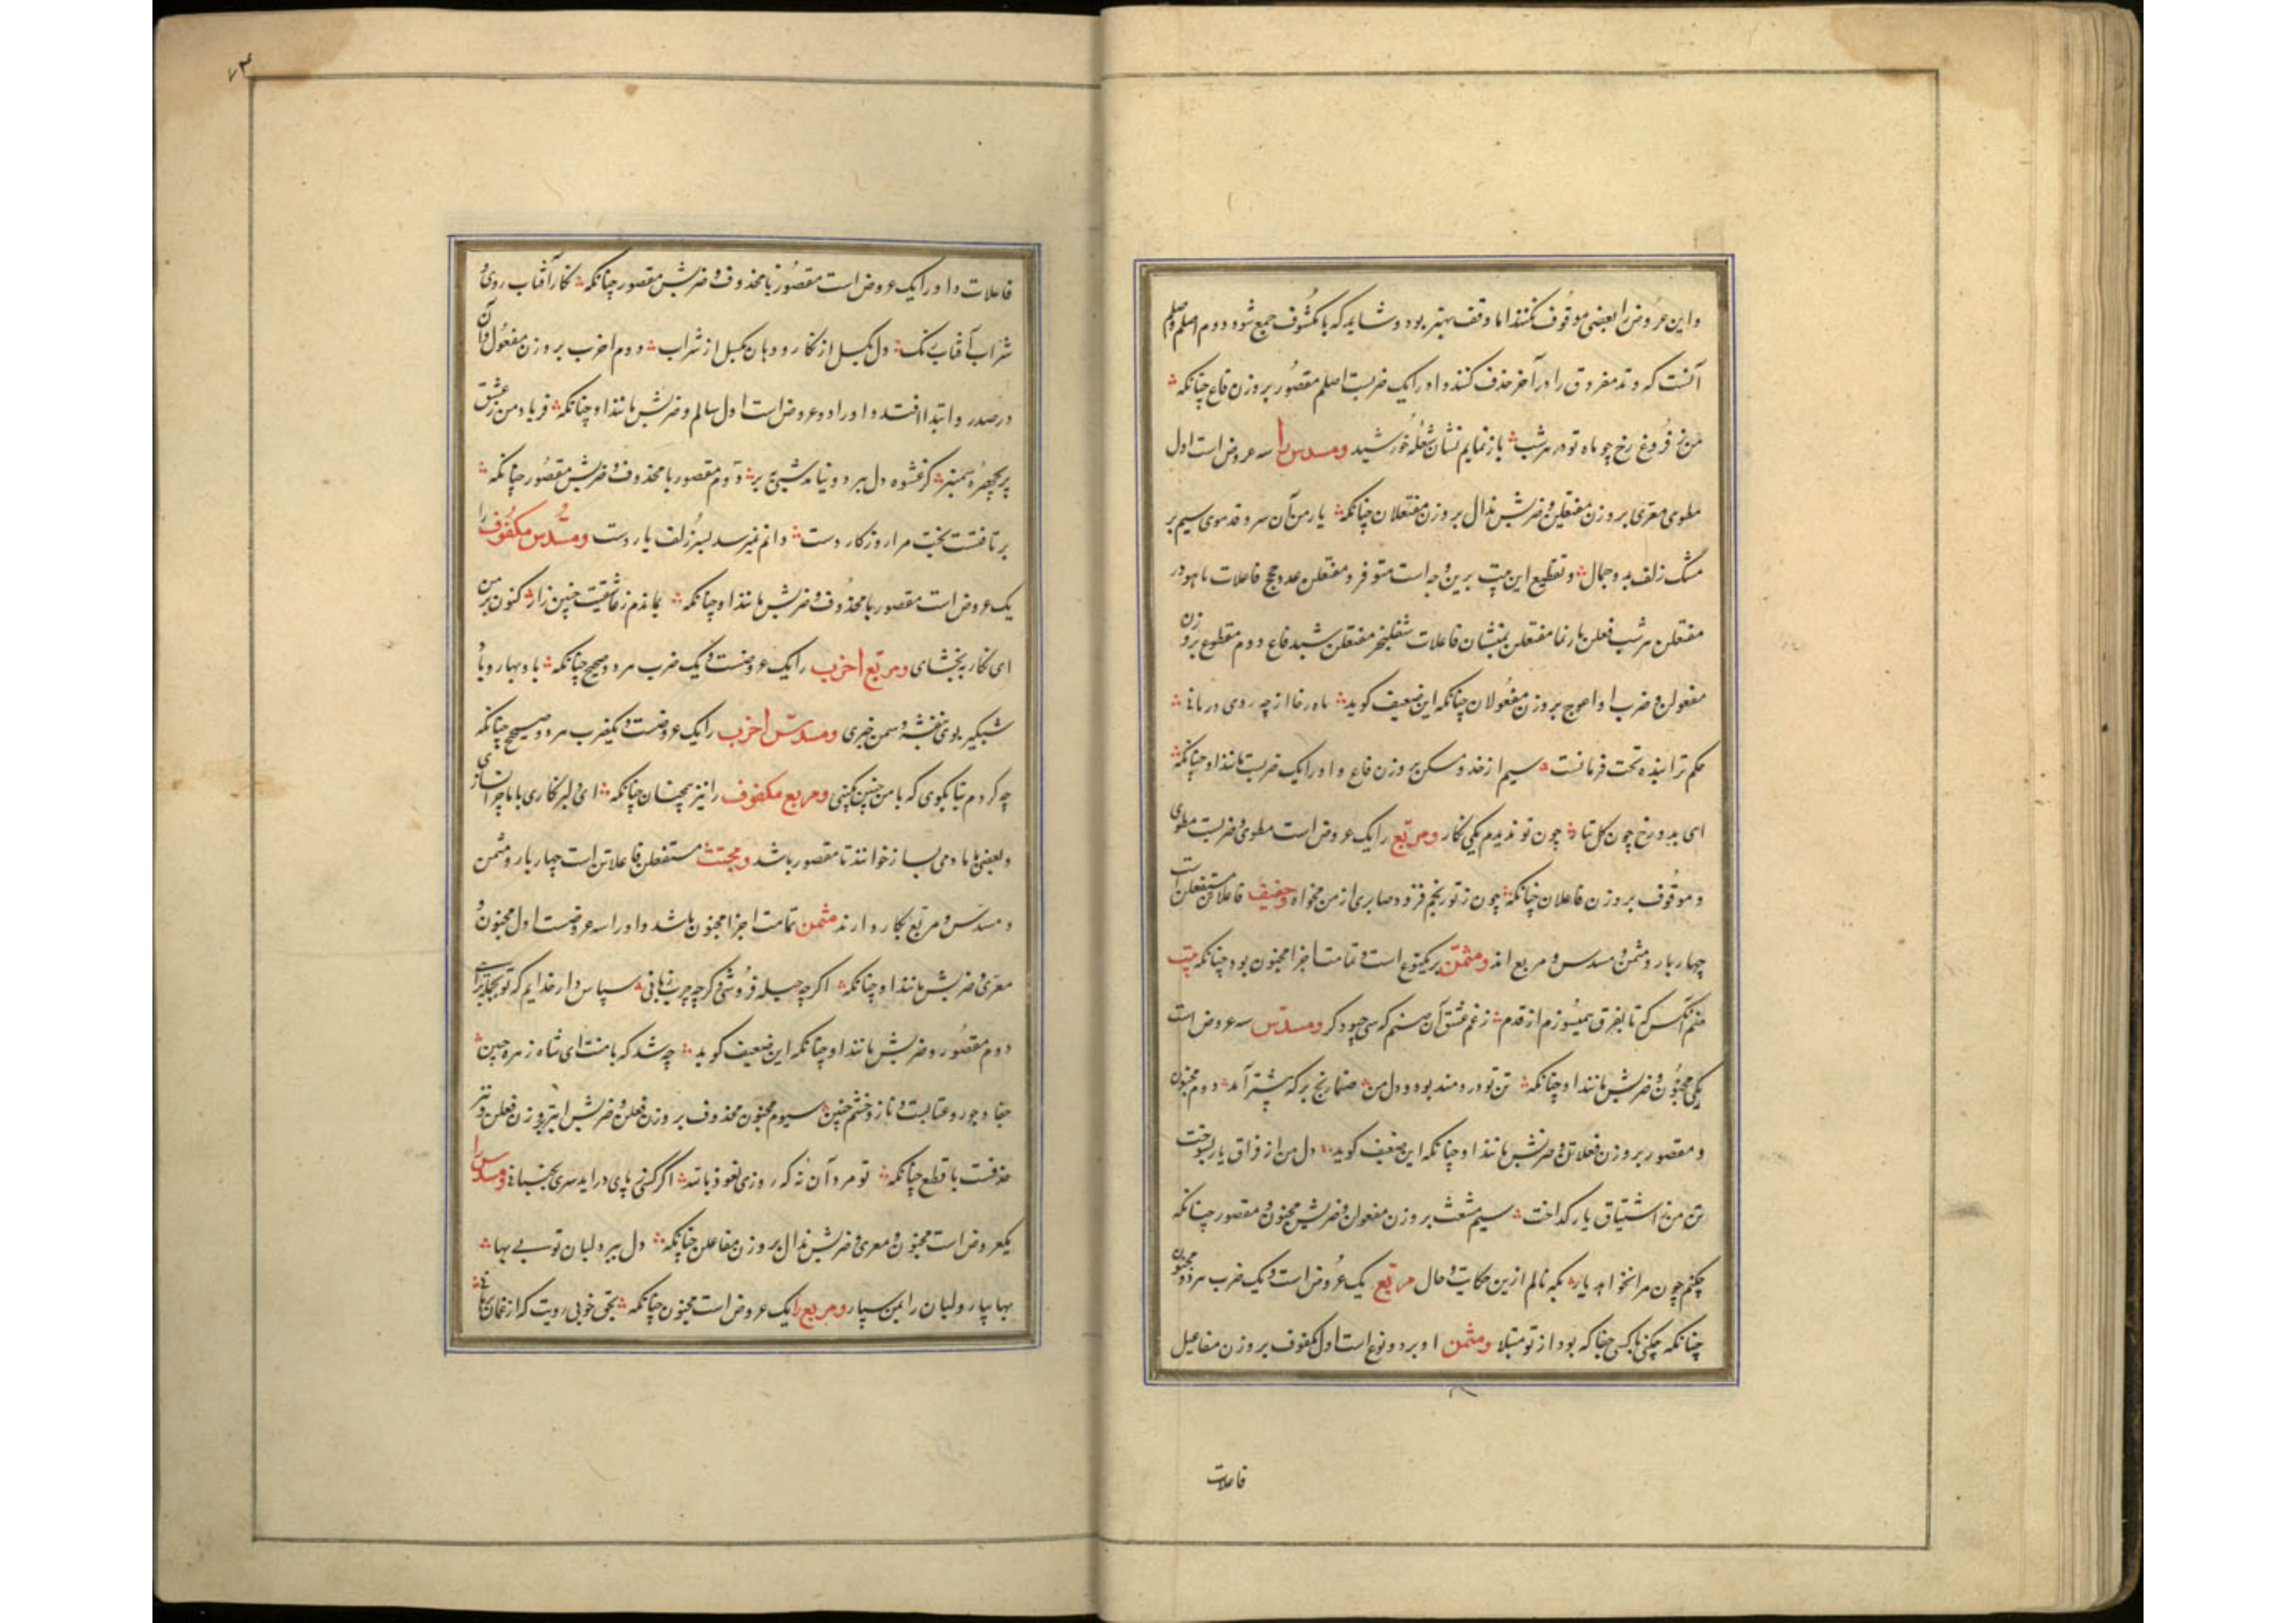 واین عروض را بعضی موقوف کنند اما وقف بهتر بود و شاید که با مکشوف جمع شود دوم اصلم و صلم
آنست که وتد مفروق را در آخر حذف کنند و اورا یک ضربست اصلم مقصور بروزن فاع چنانکه
من ز فروغ رخ چو ماه تو در هر شب بازنمایم نشان شعله خورشید ومسدس را سه عروض است اول
مطوی معری بروزن مفتعلن و ضربش مذال بروزن مفتعلان چنانکه یار من آن سرو قد موی سیم بر
مشک زلف بدو جمال و تقطیع این بیت برین وجه است
مفتعلن هر شب فعلن بازنما مفتعلن بمنشان فاعلات شعلیخر مفتعلن شید فاع دوم مقطوع بروزن
مفعولن و ضرب او اعرج بروزن مفعولان چنانکه این ضعیف کوید ماه رخا از چه روی درمانی
حکم ترا بنده تحت فرمانست سیم احذ و مسکن بروزن فاع و اورا یک ضربست مانند او چنانکه
ای بدو رخ چون کل تبار چون تو ندیدم یکی نکار ومربع را یک عروض است مطوی و ضربست مطوی
و موقوف بروزن فاعلان چنانکه چون ز تو رنجم فزود صابری از من مخواه وخفیف فاعلاتن مستفعلن است
چهار بار و مثمن و مسدس و مربع اند ومثمن بر یکنوع است و تمامت اجزا مخبون بود چنانکه بیت
منم آنکس که تا بفرق همیسوزم از قدم ز غم عشق آن صنم که سجود کر ومسدس سه عروض است
یکی مخبون و ضربش مانند او چنانکه تن تو دردمند بود و دل من صنما رنج بر که بیشتر آمد دوم مخبون
و مقصور بروزن فعلات و ضربش مانند او چنانکه این ضعیف کوید دل من از فراق یار بسوخت
تن من ز اشتیاق یار کداخت سیم مشعث بروزن مفعولن و ضربش مخبون و مقصور چنانکه
چکنم چون مرا نخواهد یار بکه نالم ازین حکایت و حال مربع یک عروض است و یک ضرب هر دو مخبون
چنانکه چکنی با کسی جفا که بود از تو مبتلا ومثمن او بر دو نوع است اول مکفوف بروزن مفاعیل
فاعلات
۷۴
فاعلات و اورا یک عروض است مقصور با محذوف و ضربش مقصور چنانکه نکار آفتاب روی و
شراب آفتاب رنک دل یکسل از نکار و دهان یکسل از شراب دوم اخرب بروزن مفعول و آن
در صدر و ابتدا افتد و اورا دو عروض است اول سالم و ضربش مانند او چنانکه فریاد من ز عشق
پریچهره سمنبر کز عشوه دل ببرد و نیامد شبی ببر دوم مقصور با محذوف و ضربش مقصور چنانکه
برتافتست بخت مرا روزکار دست دانم نمیرسد بسر زلف یار دست ومسدس مکفوف را
یک عروض است مقصور با محذوف و ضربش مانند او چنانکه بماندم ز عاشقیت چنین زار کنون بر من
ای نکار ببخشای ومربع اخرب را یک عروضست و یک ضرب هر دو صحیح چنانکه باد بهار و باد
شبکیر بوی بنفشه و سمن خیری ومسدس اخرب را یک عروضست و یکضرب هر دو صحیح چنانکه
چه کردم بتا بکوی که با من چنین کینی ومربع مکفوف را نیز همچنان چنانکه ای دلبر نکاری با ما چرا نسازی
و بعضی با ما دمی بساز خوانند تا مقصور باشد ومجتث مستفعلن فاعلاتن است چهار بار و مثمن
و مسدس و مربع بکار دارند مثمن تمامت اجزا مخبون باشد و اورا سه عروضست اول مخبون و
معری و ضربش مانند او چنانکه اکرچه حیله فروشی و کرچه چرب زبانی سپاس دارخدایم که تو بجمله مرائی
دوم مقصور و ضربش مانند او چنانکه این ضعیف کوید چه شد که با منت ای شاه زهره جبین
جفا و جور و عتابست و ناز و خشم چنین سیوم مخبون محذوف بروزن فعلن و ضربش ابتر بروزن فعلن و بتر
حذفست با قطع چنانکه تو مرد آن نه که روزی نعوذ بالله اکر کسی ز پای درآید سری بجنبانی ومسدس را
یکعروض است مخبون و معری و ضربش مذال بروزن مفاعلن چنانکه دل ببرد لبان تو بی بها
بها بیار و لبان را بمن سپار ومربع را یک عروض است مخبون چنانکه بحق خوبی رویت که از غمان برهانی